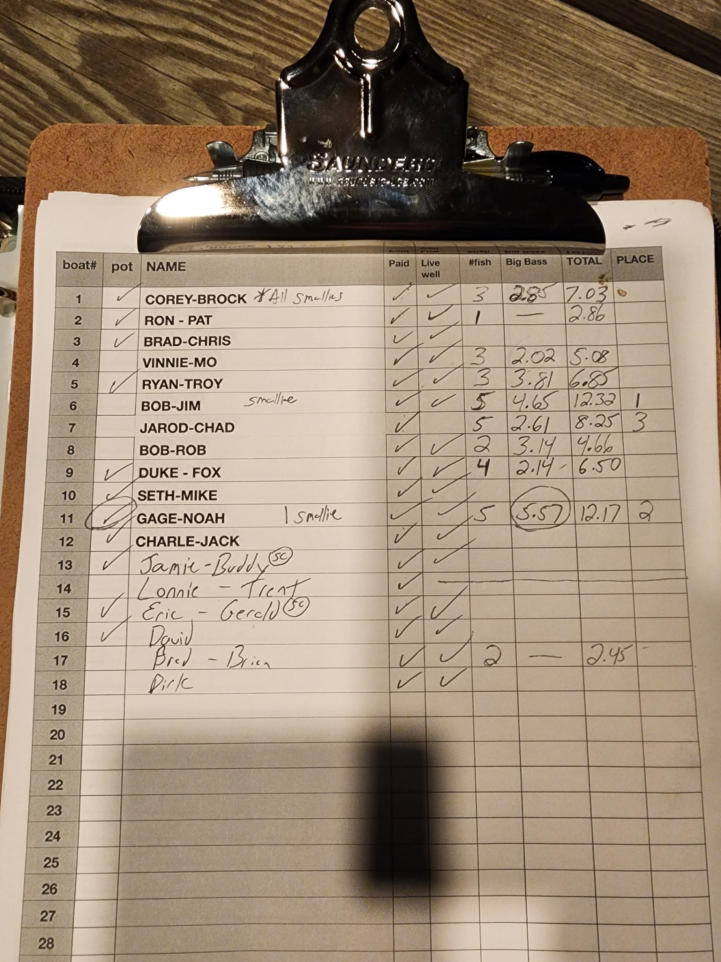 SAUNDERS
boat# pot NAME Paid Live well #fish Big Bass TOTAL PLACE
1 ✓ COREY-BROCK *All smallies ✓ ✓ 3 2.85 7.03
2 ✓ RON - PAT ✓ ✓ 1 — 2.86
3 ✓ BRAD-CHRIS ✓ ✓
4 VINNIE-MO ✓ ✓ 3 2.02 5.08
5 ✓ RYAN-TROY ✓ ✓ 3 3.81 6.85
6 BOB-JIM smallie ✓ ✓ 5 4.65 12.32 1
7 JAROD-CHAD ✓ 5 2.61 8.25 3
8 BOB-ROB ✓ ✓ 2 3.14 4.66
9 ✓ DUKE - FOX ✓ ✓ 4 2.14 - 6.50
10 ✓ SETH-MIKE ✓ ✓
11 ✓ GAGE-NOAH 1 smallie ✓ ✓ 5 5.57 12.17 2
12 ✓ CHARLE-JACK ✓ ✓
13 ✓ Jamie-Buddy SC ✓ ✓
14 Lonnie - Trent ✓ —
15 ✓ Eric - Gerald SC ✓ ✓
16 ✓ David ✓ ✓
17 Brad - Brian ✓ ✓ 2 — 2.45
18 Dirk ✓ ✓
19
20
21
22
23
24
25
26
27
28